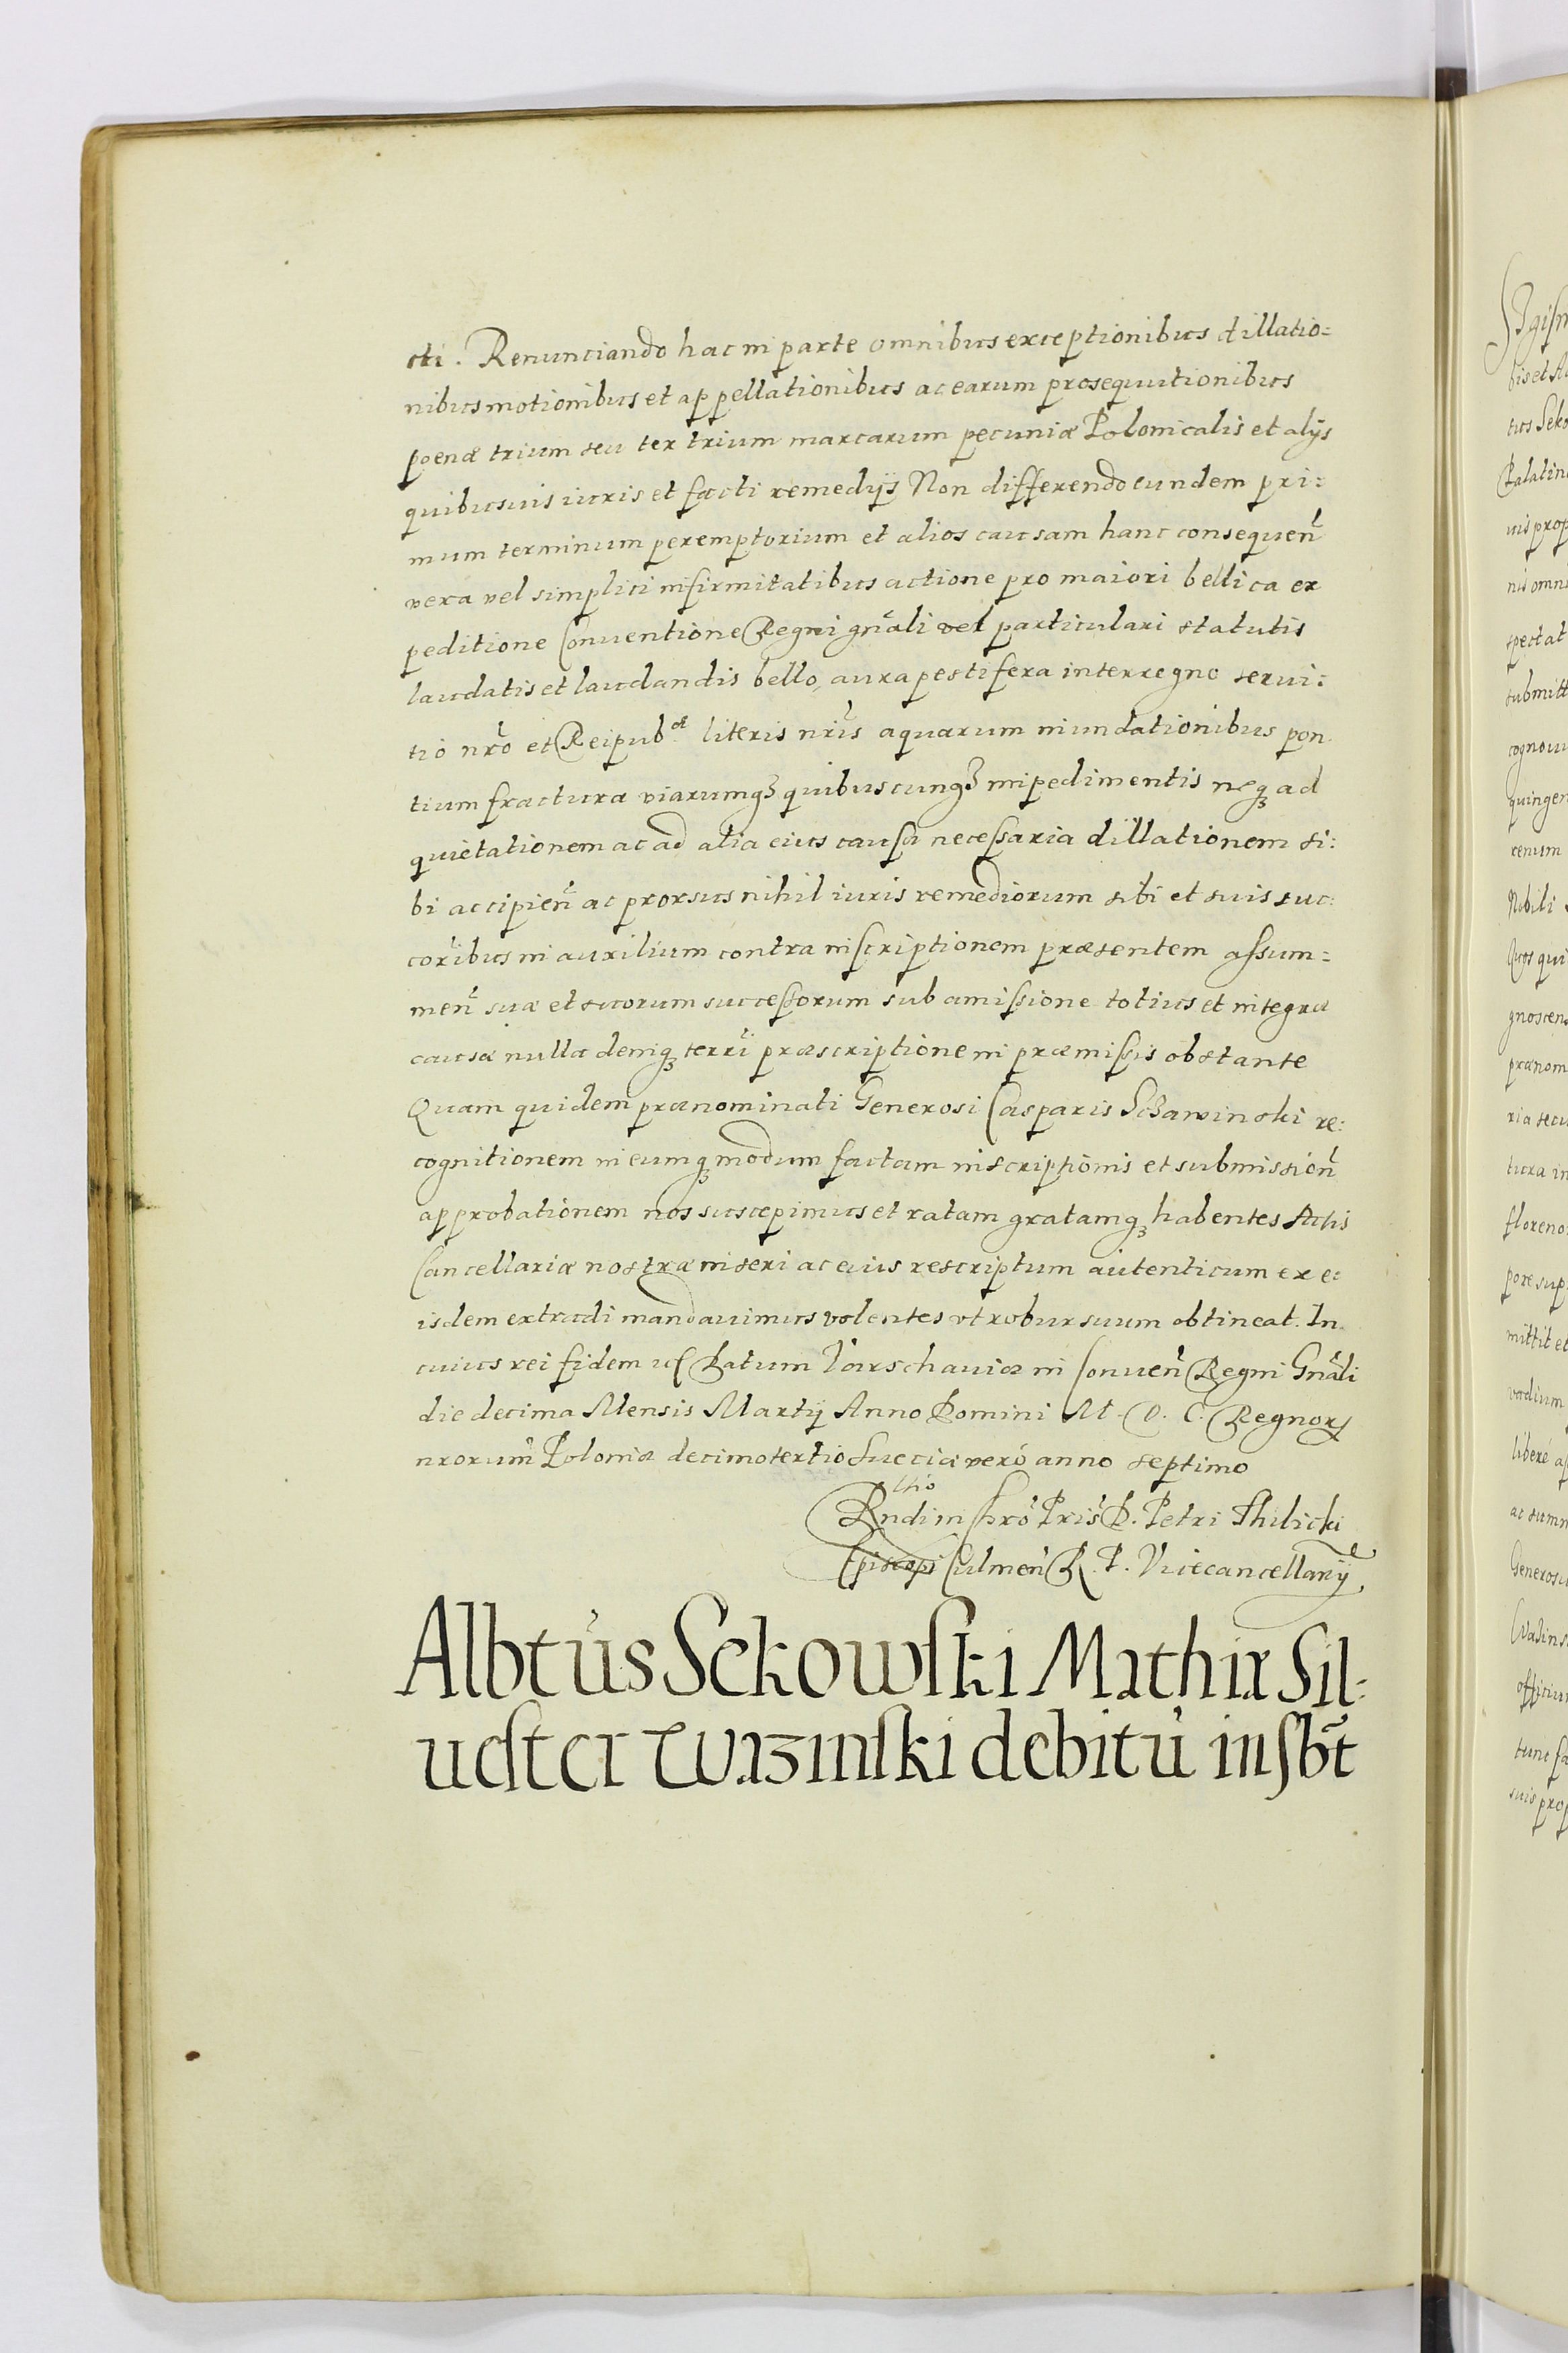 cti. Renunciando hac in parte omnibus exceptionibus dillatio=
nibus motionibus et appellationibus ac earum prosequutionibus
poenæ trium seu ter trium marcarum pecuniæ Polonicalis et alijs
quibusuis iuris et facti remedijs Non differendo eundem pri:
mum terminum peremptorium et alios causam hanc consequen̄
vera vel simplici infirmitatibus actione pro maiori bellica ex
peditione Conuentione Regni gn̄ali vel particulari statutis
laudatis et laudandis bello, aura pestifera interregno serui:
tio nr̄o et Reipubᵃᵉ literis nr̄is aquarum inundationibus pon
tium fractura viarumqꝫ quibuscunqꝫ impedimentis neqꝫ ad
quietationem ac ad alia eius causæ necessaria dillationem si:
bi accipien̄ ac prorsus nihil iuris remediorum sibi et suis suc:
cōribus in auxilium contra inscriptionem præsentem assum=
men̄ suæ et suorum successorum sub amissione totius et integræ
causæ nulla deniqꝫ terr̄i præscriptione in præmissis obstante
Quam quidem prænominati Generosi Casparis Sczawinski re:
cognitionem in eumqꝫ modum factam inscriptionis et submission̄
approbationem nos suscepimus et ratam gratamqꝫ habentes Actis
Cancellariæ nostræ inseri ac eius rescriptum autenticum ex e:
isdem extradi mandauimus volentes vt robur suum obtineat. In
cuius rei fidem uſ Datum Varschauiæ in Conuen̄ Regni Gn̄ali
die decima Mensis Martij Anno Domini M. D. C. Regnorꝝ
nrorum̄ Poloniæ decimotertio Sueciæ verò anno septimo
Rndi in Chrō Pris̄ D. Petri Thilicki
Episcopi Culmen̄ R. P. Vicecancellarij
Albtūs Sekowſki Mathiæ Sil:
ueſter Wazinſki debitū inſbt̄